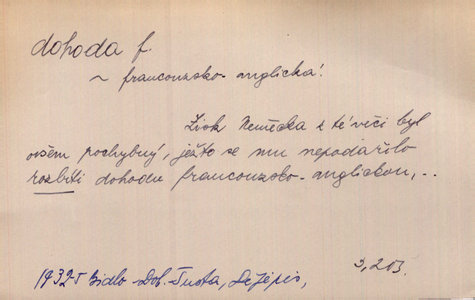 dohoda f.
~ francouzsko-anglická!
Zisk Německa z té věci byl
ovšem pochybný, ježto se mu nepodařilo
rozbíti dohodu francouzsko-anglickou,..
1932 Bidlo-Dob.-Šusta, Dějepis,
3, 203.